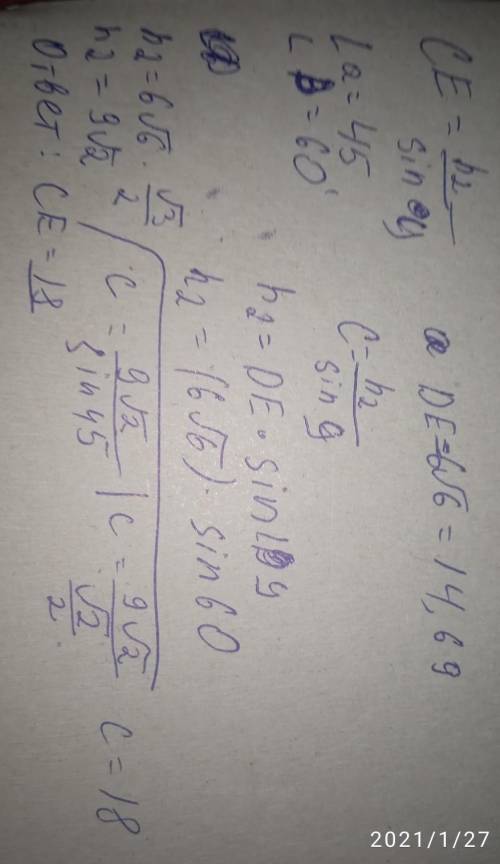 CE = h₂ / sin
DE = 6√6 = 14,69
∠a = 45
∠ = 60°
C = h₂ / sin y
h₂ = DE · sin
h₂ = (6√6) · sin 60
h₂ = 6√6 · √3 / 2
h₂ = 9√2
C = 9√2 / sin 45 | C = 9√2 / √2 / 2
C = 18
Ответ: CE = 18
2021/1/27